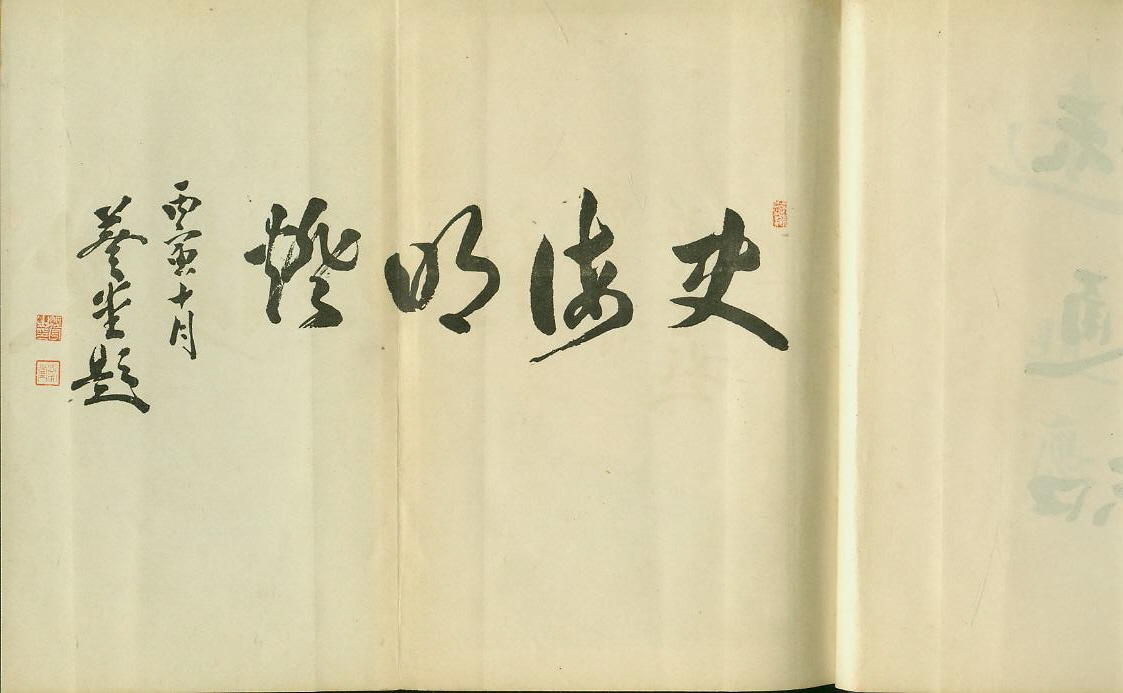 史海明燈
丙寅十月
葵堂題